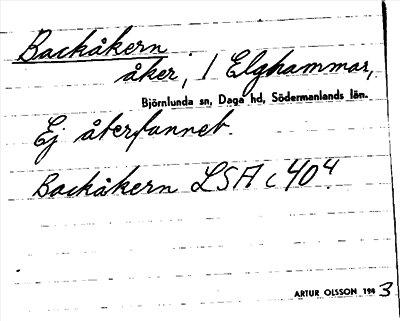 Backåkern
åker, i Elghammar,
Björnlunda sn, Daga hd, Södermanlands län.
Ej återfunnet
Backåkern LSA c 40⁴
ARTUR OLSSON 1943